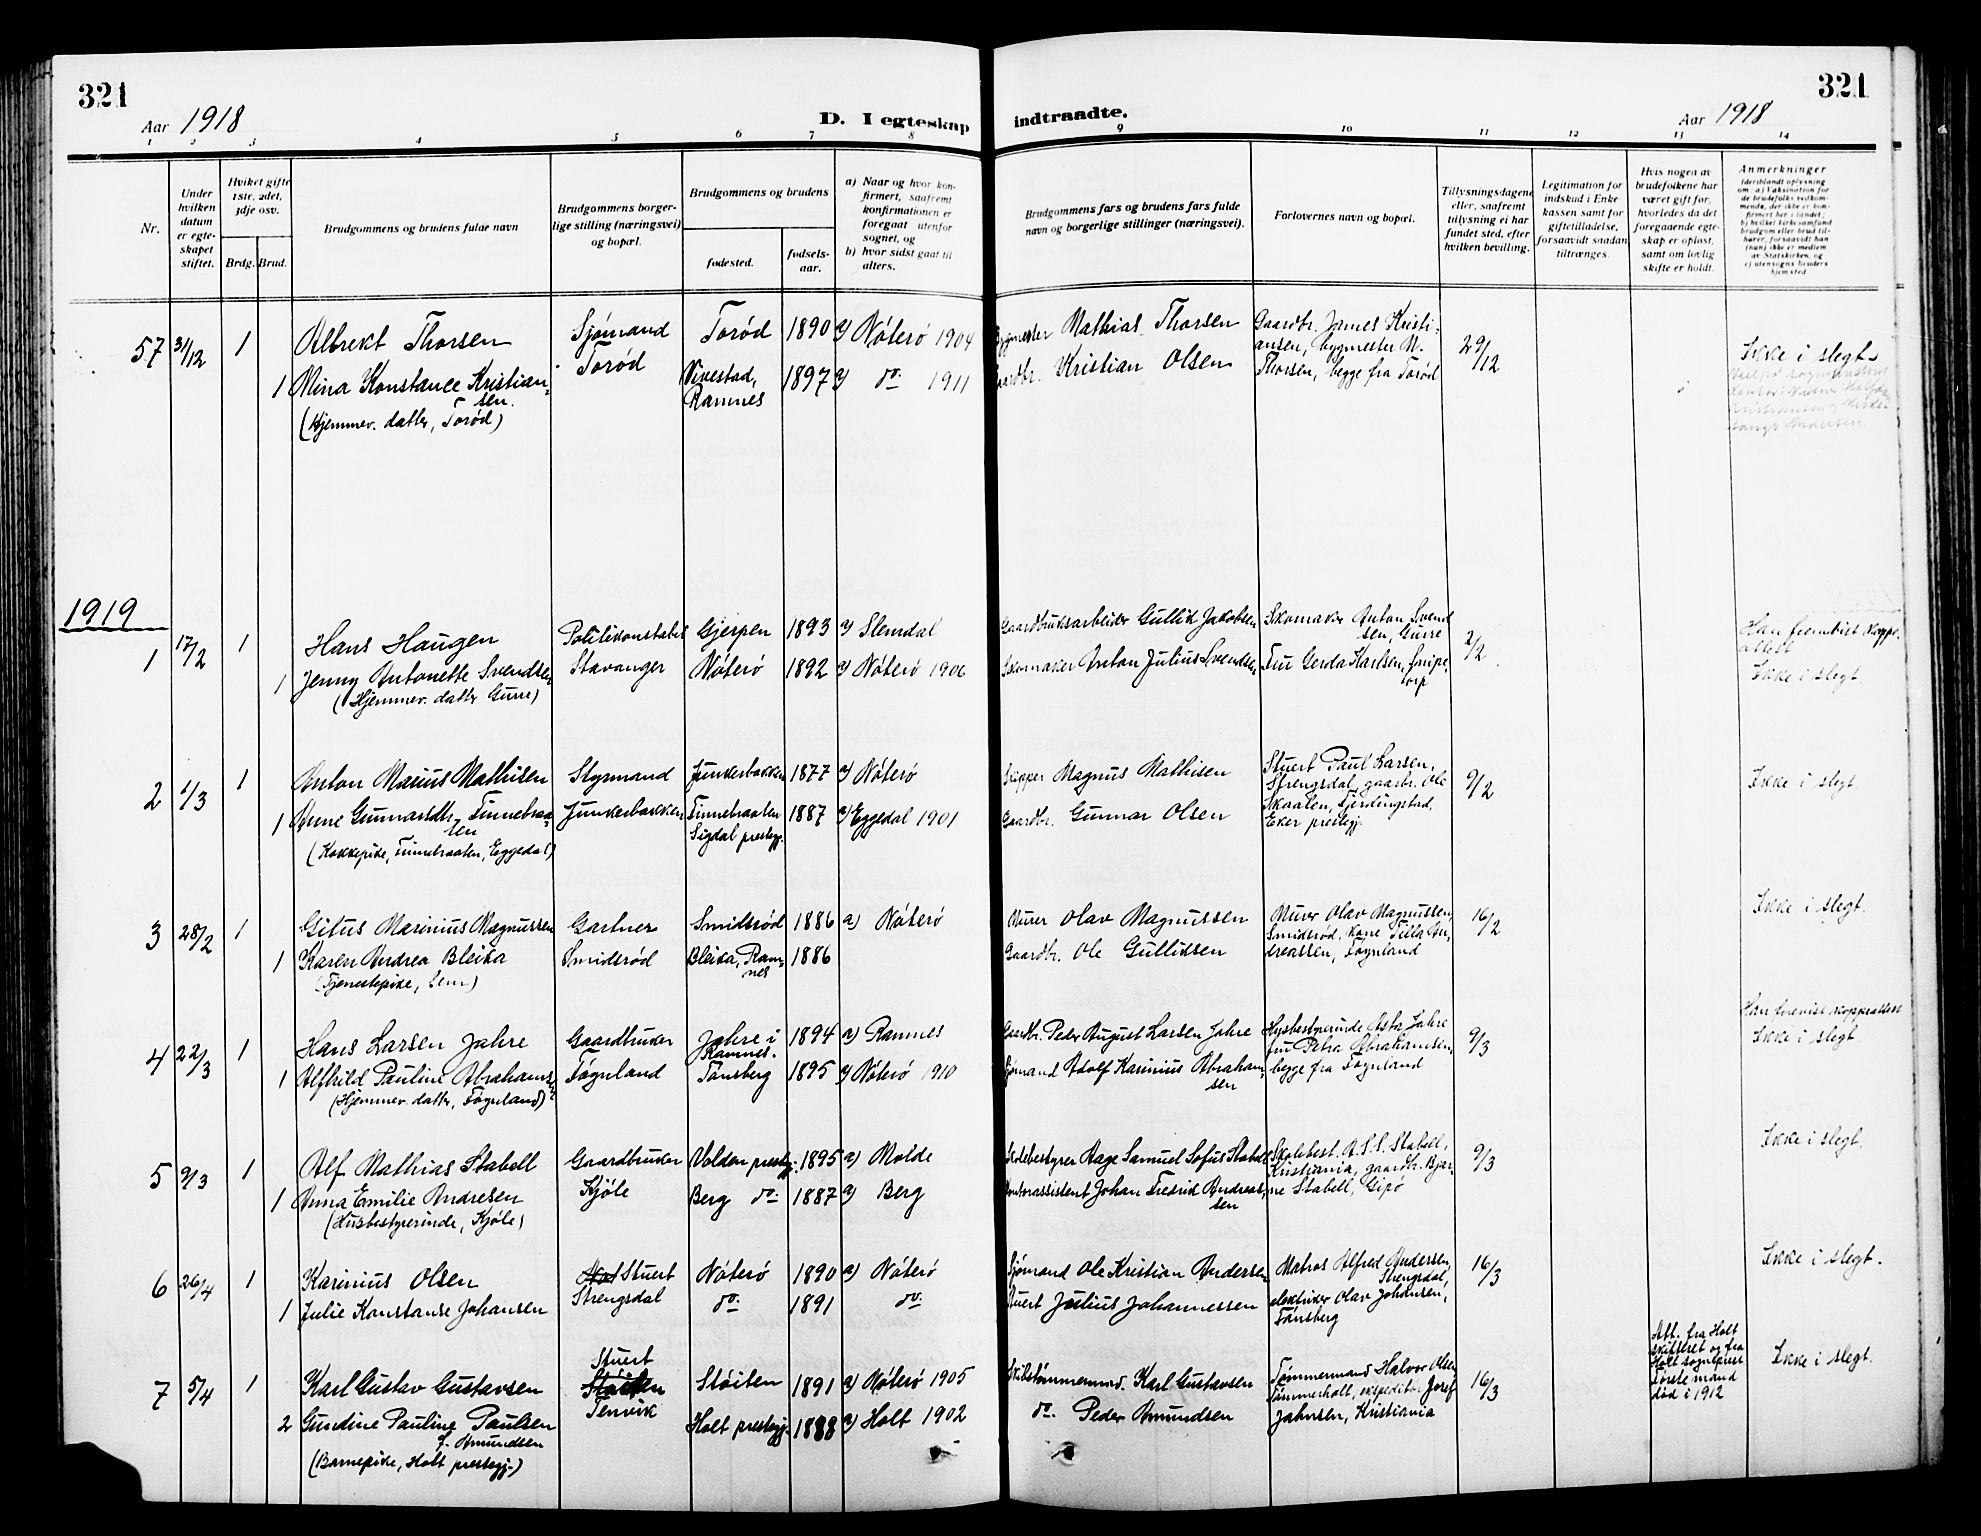 321
Aar 1918
D. I egteskap
indtraadte.
Aar 1918
321
1 2 3 4 5 6 7 8 9 10 11 12 13 14
Nr.
Under hvilken datum er egte-skapet stiftet.
Hviket gifte 1ste, 2det, 3dje osv.
Brdg. Brud.
Brudgommens og brudens fulde navn
Brudgommens borger-lige stilling (næringsvei) og bopæl.
Brudgommens og brudens
fødested.
fødsels-aar.
a) Naar og hvor kon-firmert, saafremt konfirmationen er foregaat utenfor sognet, og
b) hvor sidst gaat til alters.
Brudgommens fars og brudens fars fulde navn og borgerlige stillinger (næringsvei).
Forlovernes navn og bopæl.
Tillysningsdagene eller, saafremt tillysning ei har fundet sted, efter hvilken bevilling.
Legitimation for indskud i Enke kassen samt for giftetilladelse, forsaavidt saadan tiltrænges.
Hvis nogen av brudefolkene har været gift før, hvorledes da det foregaaende egte-skap er opløst, samt om lovlig skifte er holdt.
Anmerkninger
(deriblandt oplysning om: a) Vaksination for de brudefolks vedkom-mende, der ikke er kon-firmert her i landet; b) hvilket kirkesamfund brudgom eller brud til-hører, forsaavidt han (hun) ikke er medlem av Statskirken, og c) utensogns bruders hjemsted
57 31/12 1 Albrekt Thorsen Sjømand Torød Torød 1890 a) Nøterø 1904 Bygmester Mathias Thorsen Gaardbr. James Kristi-ansen, bygmester M. Thorsen, begge fra Torød 29/12 Ikke i slegt.
1 Mina Konstance Kristian-sen. Vivestad, Ramnes 1897 a) do. 1911 Gaardbr. Kristian Olsen
(Hjemmev. datter, Torød)
1919
1 17/2 1 Hans Haugen Politikonstabel Stavanger Gjerpen 1893 a) Slemdal Gaardbruksarbeider Gullik Jakobsen Skomaker Anton Svend-sen, Gurre 2/2
1 Jenny Antonette Svendsen Nøterø 1892 a) Nøterø 1906 Skomaker Anton Julius Svendsen Fru Gerda Karlsen, Ikke i slegt
(Hjemmev. datter Gurre)
2 1/3 1 Anton Marius Mathisen Styrmand Junkerbakken Junkerbakken 1877 a) Nøterø Skipper Magnus Mathisen Stuert Paul Larsen, Strengsdal, gaardbr. Ole Skaalen, Fjerdingstad, Eker prestegj. 9/2 Ikke i slegt
1 Anne Gunnarsdtr. Finnebraa-ten Finnebraaten Sigdal prestegj. 1887 a) Eggedal 1901 Gaardbr. Gunnar Olsen
(Kokkepike, Finnebraaten, Eggedal)
3 28/2 1 Gitus Marinius Magnussen Gartner Smidsrød Smidsrød 1886 a) Nøterø Murer Olav Magnussen Murer Olav Magnussen, Smidsrød, kone Tilla An-dreassen, Føynland 16/2 Ikke i slegt.
1 Karen Andrea Bleika Bleika, Ram-nes 1886 Gaardbr. Ole Gulliksen
(Tjenestepike, Sem)
4 22/3 1 Hans Larsen Jahre Gaardbruker Føynland Jahre i Ramnes. 1894 a) Ramnes Gaardbr. Peder August Larsen Jahre Husbestyrerinde Asta Jahre fru Petra Abrahamsen, begge fra Føynland 9/3 Ikke i slegt
1 Alfhild Pauline Abrahamsen Tønsberg 1895 a) Nøterø 1910 Sjømand Adolf Karinius Abraham-sen
(Hjemmev. datter, Føynland)
5 9/3 1 Alf Mathias Stabell Gaardbruker Kjøle Volden prestegj. 1895 a) Molde Skolebestyrer Aage Samuel Sofus Stabell Skolebest. A.S.S. Stabell, Kristiania, gaardbr. Bjar-ne Stabell, Gipø 9/3 Ikke i slegt.
1 Anna Emilie Andresen Berg do. 1887 a) Berg Kontorassistent Johan Fredrik Andreas-sen
(Husbestyrerinde, Kjøle)
6 26/4 1 Karinius Olsen Stuert Strengsdal Nøterø 1890 a) Nøterø Sjømand Ole Kristian Andersen Matros Alfred Andersen, Strengsdal, elektriker Olav Johansen, Tønsberg 16/3 Ikke i slegt.
1 Julie Konstanse Johansen do. 1891 do. Stuert Julius Johannessen
7 5/4 1 Karl Gustav Gustavsen Stuert Støiten Tenvik Støiten 1891 a) Nøterø 1905 Skibstømmermand. Karl Gustavsen Tømmermand Halvor Olsen Tømmerholt, ekspeditør Josef Jahnsen, Kristiania 16/3 Att. fra Holt skifteret og fra Holt sogneprest Første mand død i 1912 Ikke i slegt.
2 Gundine Pauline Paulsen f. Amundsen Holt prestegj. 1888 a) Holt 1902 do. Peder Amundsen
(Barnepike, Holt prestegj.)